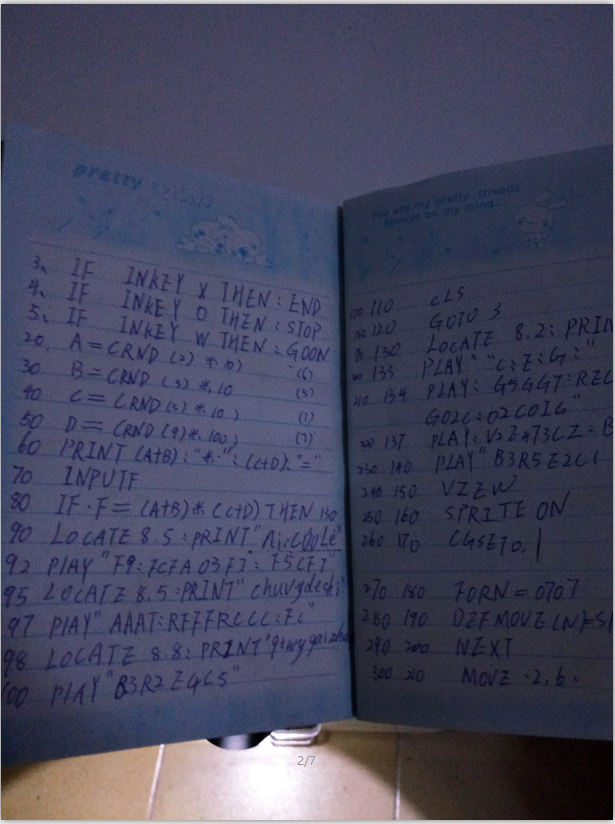 pretty
3、 IF INKEY X THEN : END
4、 IF INKEY O THEN : STOP
5、 IF INKEY W THEN : GOON
20. A = CRND (2) *.10) (6)
30 B = CRND (3) *.10 (5)
40 C = CRND (5) *.10) (1)
50 D = CRND (9) *.100) (7)
60 PRINT (A+B): "*·": (C+D): "="
70 INPUTF
80 IF·F = (A+B) * (C+D) THEN 130
90 LOCATE 8.5 : PRINT"
92 PLAY "F9:
95 LOCATE 8.5 : PRINT" chuvgdeshi"
97 PlAY" AAAT: RFFFRCCC: FC"
98 LOCATE 8.8: PRINT"
100 PLAY "B3R2E4C5"
You are my pretty friends
Always on my mind..
110 CLS
120 GOTO 3
130 LOCATE 8.2: PRIN
133 PLAY" "C:E:G:"
210 134 PLAY: G5GGT: REC
GO2C: O2C0IG"
137 PLAY: V2Z4T3CZ: B
230 140 PLAY" B3R5E2C1
240 150 VZEW
250 160 SPRITE ON
260 170 CGSETO.1
270 180 FORN = 0TO7
280 190 DZFMOVE (N)=SP
290 200 NEXT
300 210 MOVE ·2,6·
2/7